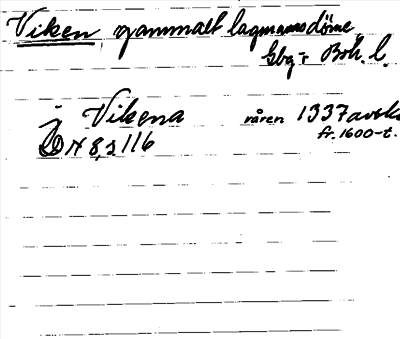 Viken, gammalt lagmansdöme
Gbg-r Boh. l.
j Vikena våren 1337 avskr.
DN 8, s 116 fr. 1600-t.